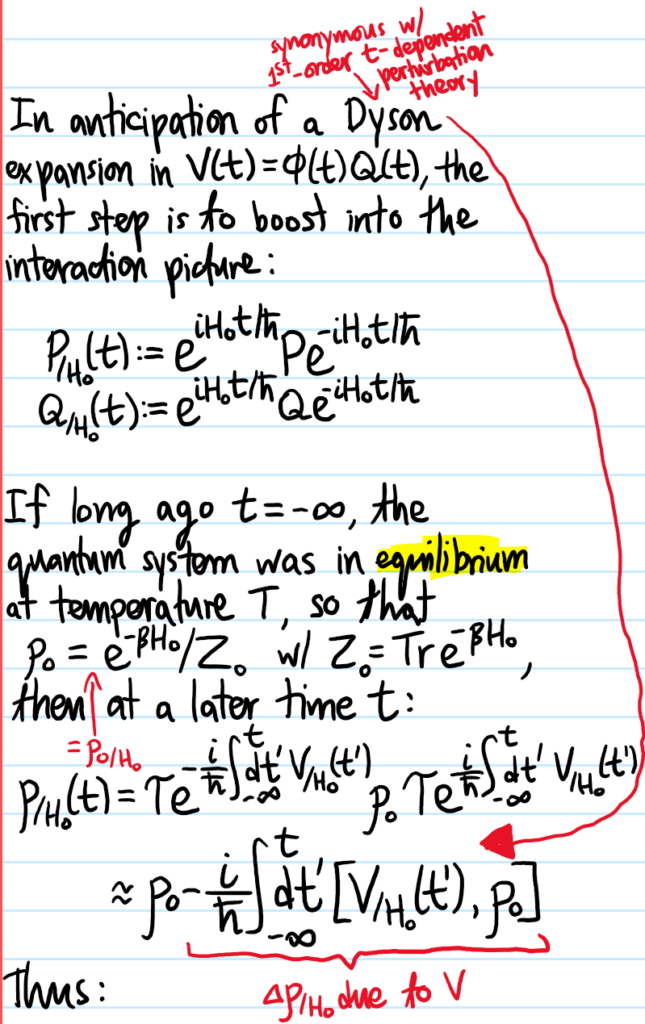 synonymous w/
1st-order t-dependent
perturbation
theory
In anticipation of a Dyson
expansion in V(t)=ϕ(t)Q(t), the
first step is to boost into the
interaction picture:
P/H₀(t):= e^{iH₀t/ħ} P e^{-iH₀t/ħ}
Q/H₀(t):= e^{iH₀t/ħ} Q e^{-iH₀t/ħ}
If long ago t=-∞, the
quantum system was in equilibrium
at temperature T, so that
ρ₀ = e^{-βH₀}/Z₀ w/ Z₀=Tr e^{-βH₀},
then at a later time t:
=ρ₀/H₀
ρ/H₀(t) = T e^{-i/ħ ∫_{-∞}^{t} dt' V/H₀(t')} ρ₀ T e^{i/ħ ∫_{-∞}^{t} dt' V/H₀(t')}
≈ ρ₀ - i/ħ ∫_{-∞}^{t} dt' [V/H₀(t'), ρ₀]
Thus: Δρ/H₀ due to V